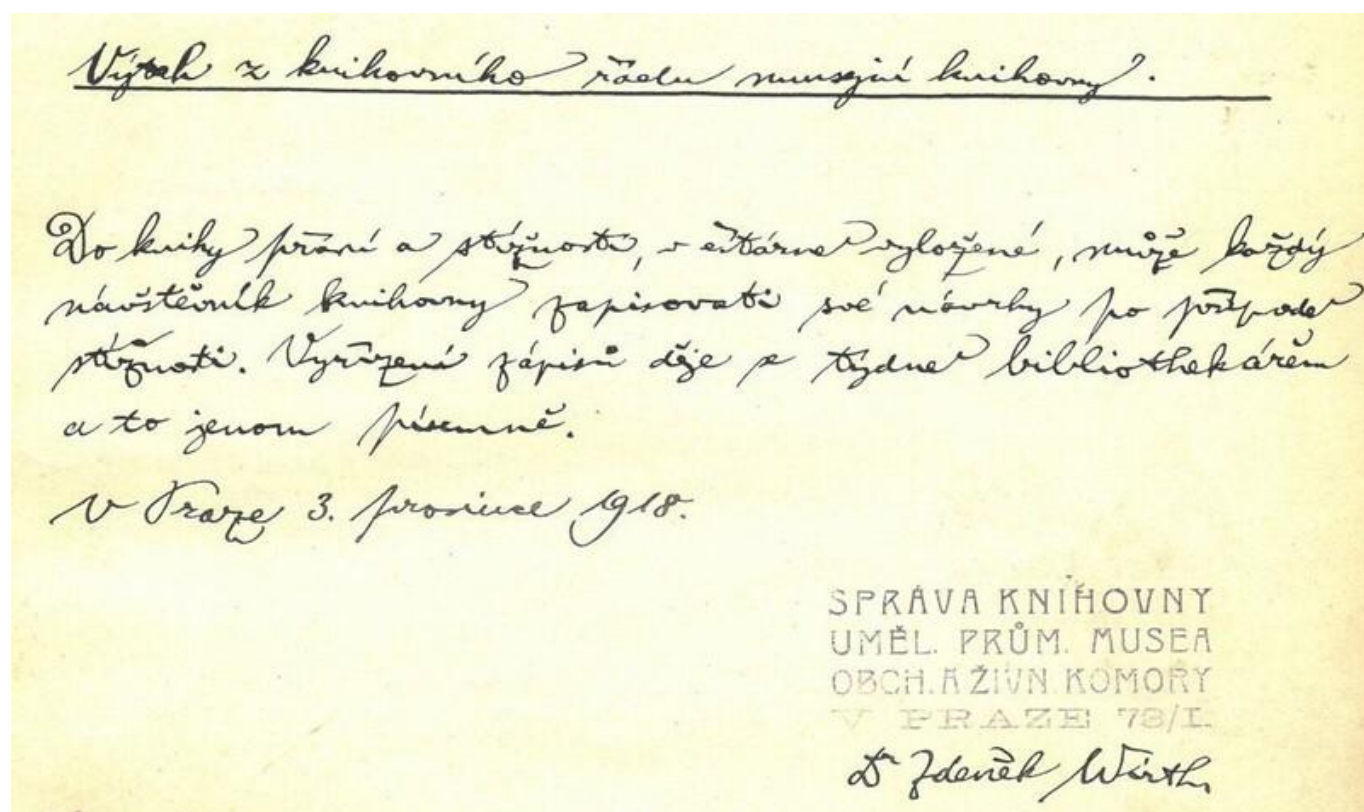 Výtah z knihovního řádu musejní knihovny.
Do knihy přání a stížností, v čítárně vyložené, může každý
návštěvník knihovny zapisovati své návrhy po případě
stížnosti. Vyřízení zápisů děje se týdně bibliothekářem
a to jenom písemně.
V Praze 3. prosince 1918.
SPRÁVA KNIHOVNY
UMĚL. PRŮM. MUSEA
OBCH. A ŽIVN. KOMORY
V PRAZE 73/I.
Dr Zdeněk Wirth